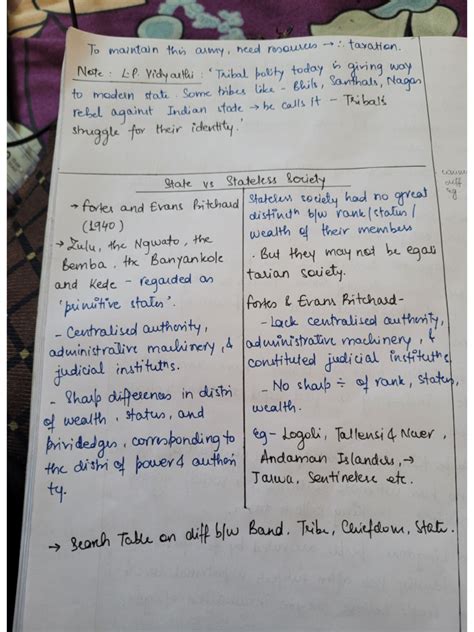 To maintain this army, need resources → ∴ taxation.
Note: L.P. Vidyarthi: 'Tribal polity today is giving way
to modern state. Some tribes like - Bhils, Santhals, Nagas
rebel against Indian state → he calls it - Tribal's
struggle for their identity.'
State vs Stateless Society
→ Fortes and Evans Pritchard
(1940)
→ Zulu, the Ngwato, the
Bemba, the Banyankole
and Kede - regarded as
'primitive states'.
- Centralised authority,
administrative machinery, &
judicial institutns.
- Sharp differences in distri
of wealth, status, and
priviledges, corresponding to
the distri of power & authori
ty.
Stateless society had no great
distinctn b/w rank/status/
wealth of their members
. But they may not be egali
tarian society.
Fortes & Evans Pritchard-
- Lack centralised authority,
administrative machinery, &
constituted judicial institutns.
- No sharp ÷ of rank, status,
wealth.
Eg- Logoli, Tallensi & Nuer,
Andaman Islanders, →
Jarwa, Sentinelese etc.
→ Search Table on diff b/w Band, Tribe, Chiefdom, State.
diff
Eg